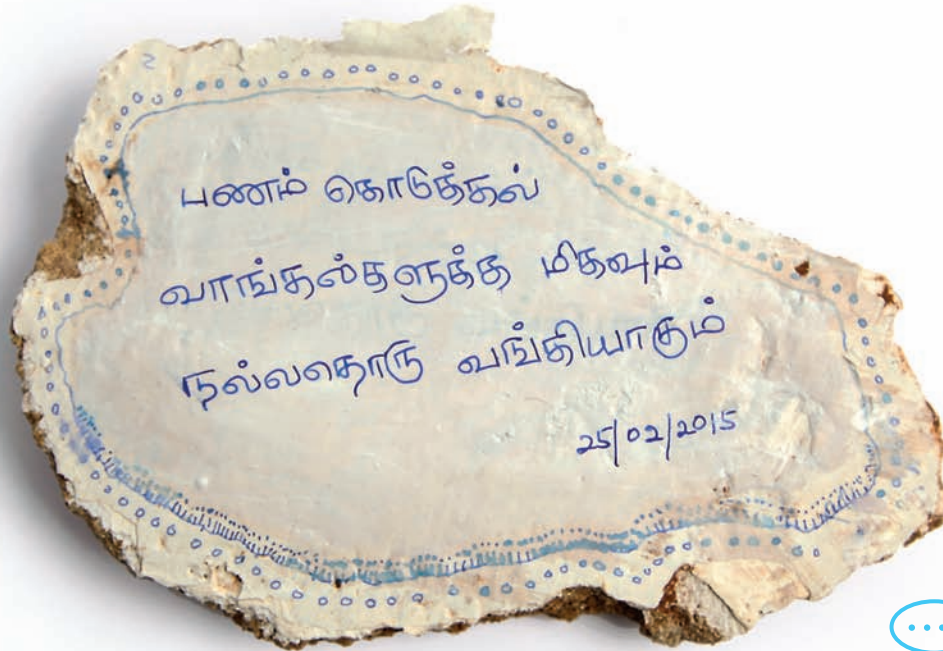 பணம் கொடுத்தல்
வாங்கல்களுக்கு மிகவும்
நல்லதொரு வங்கியாகும்
25/02/2015